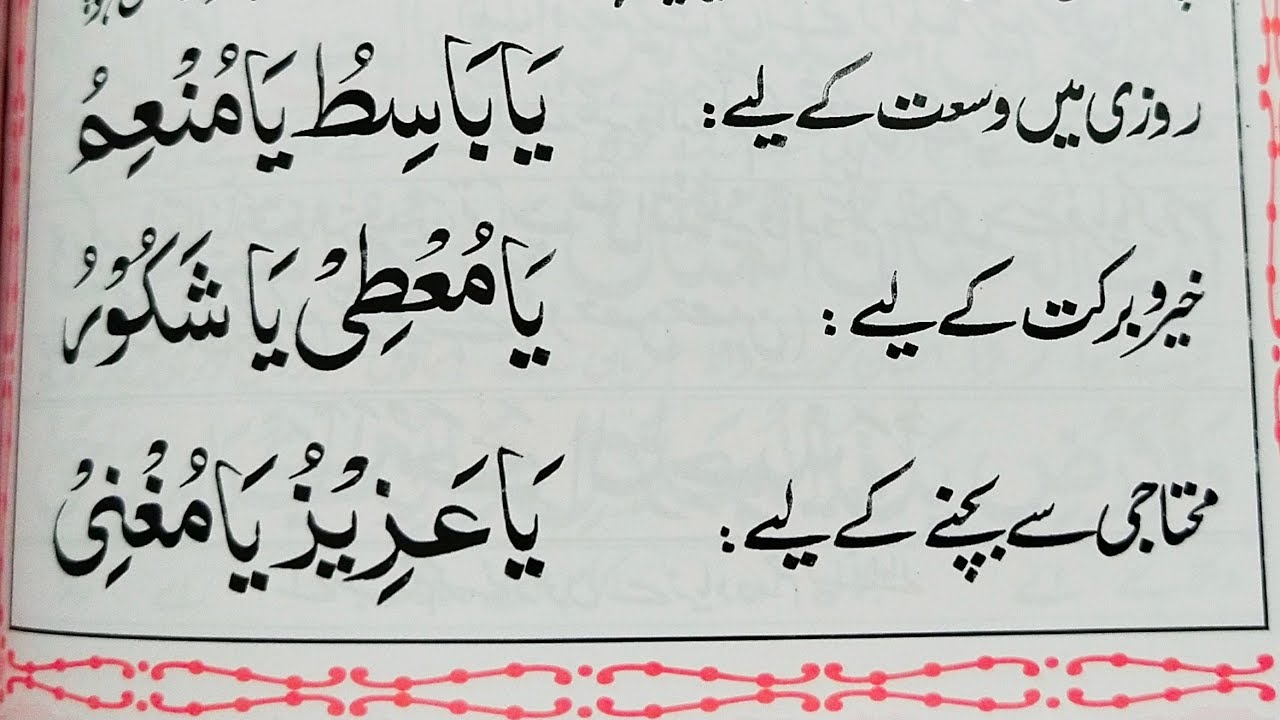 روزی میں وسعت کے لیے : يَا بَاسِطُ يَا مُنْعِمُ
خیر و برکت کے لیے : يَا مُعْطِىْ يَا شَكُوْرُ
محتاجی سے بچنے کے لیے : يَا عَزِيْزُ يَا مُغْنِىْ